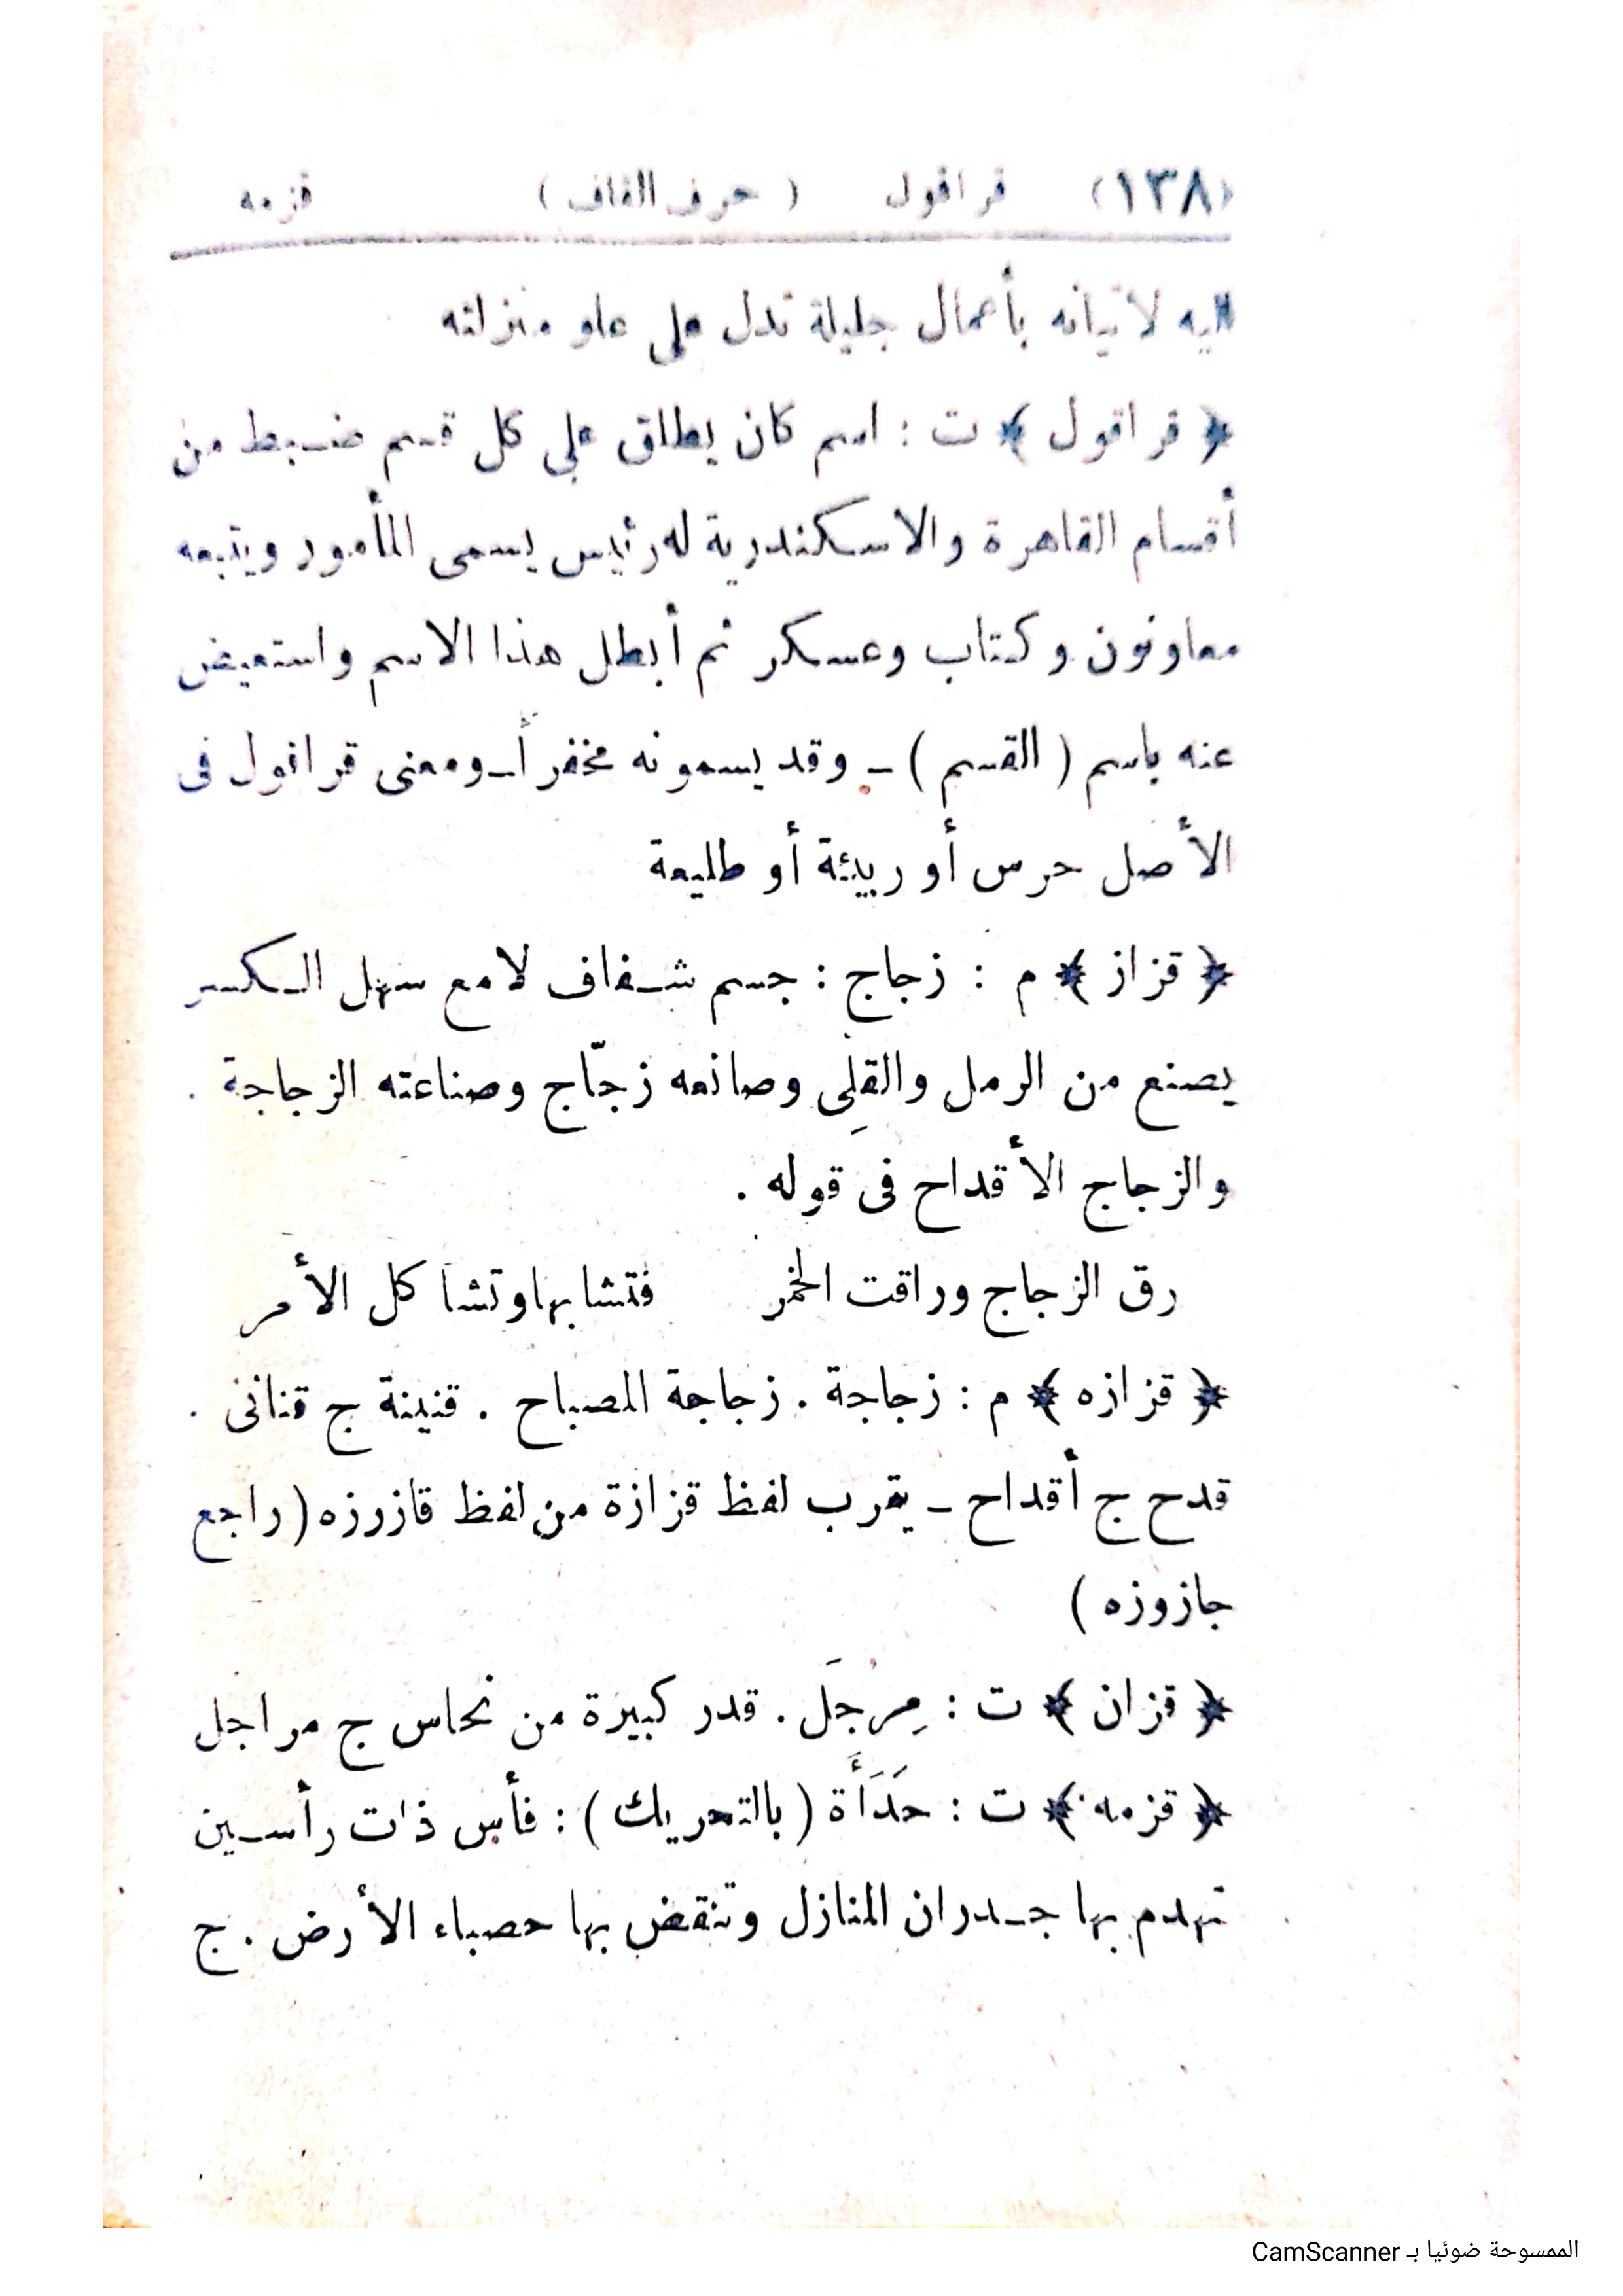 (١٣٨) قراقول ( حرف القاف ) قزمه
اليه لاتيانه بأعمال جليلة تدل على علو منزلته
﴿ قراقول ﴾ ت : اسم كان يطلق على كل قسم ضبط من
أقسام القاهرة والاسكندرية له رئيس يسمى المأمور ويتبعه
معاونون وكتاب وعسكر ثم أبطل هذا الاسم واستعيض
عنه باسم ( القسم ) ـ وقد يسمونه مخفراً ـ ومعنى قراقول فى
الأصل حرس أو ربيئة أو طليعة
﴿ قزاز ﴾ م : زجاج : جسم شفاف لامع سهل الكسر
يصنع من الرمل والقلِى وصانعه زجّاج وصناعته الزجاجة .
والزجاج الأقداح فى قوله .
رق الزجاج وراقت الخمر فتشابها وتشا كل الأمر
﴿ قزازه ﴾ م : زجاجة . زجاجة المصباح . قنينة ج قنانى .
قدح ج أقداح ـ يقرب لفظ قزازة من لفظ قازوزه ( راجع
جازوزه )
﴿ قزان ﴾ ت : مِرجَل . قدر كبيرة من نحاس ج مراجل
﴿ قزمه ﴾ ت : حَدَأَة ( بالتحريك ) : فأس ذات رأسين
تهدم بها جدران المنازل وتنقض بها حصباء الأرض . ج
الممسوحة ضوئيا بـ CamScanner